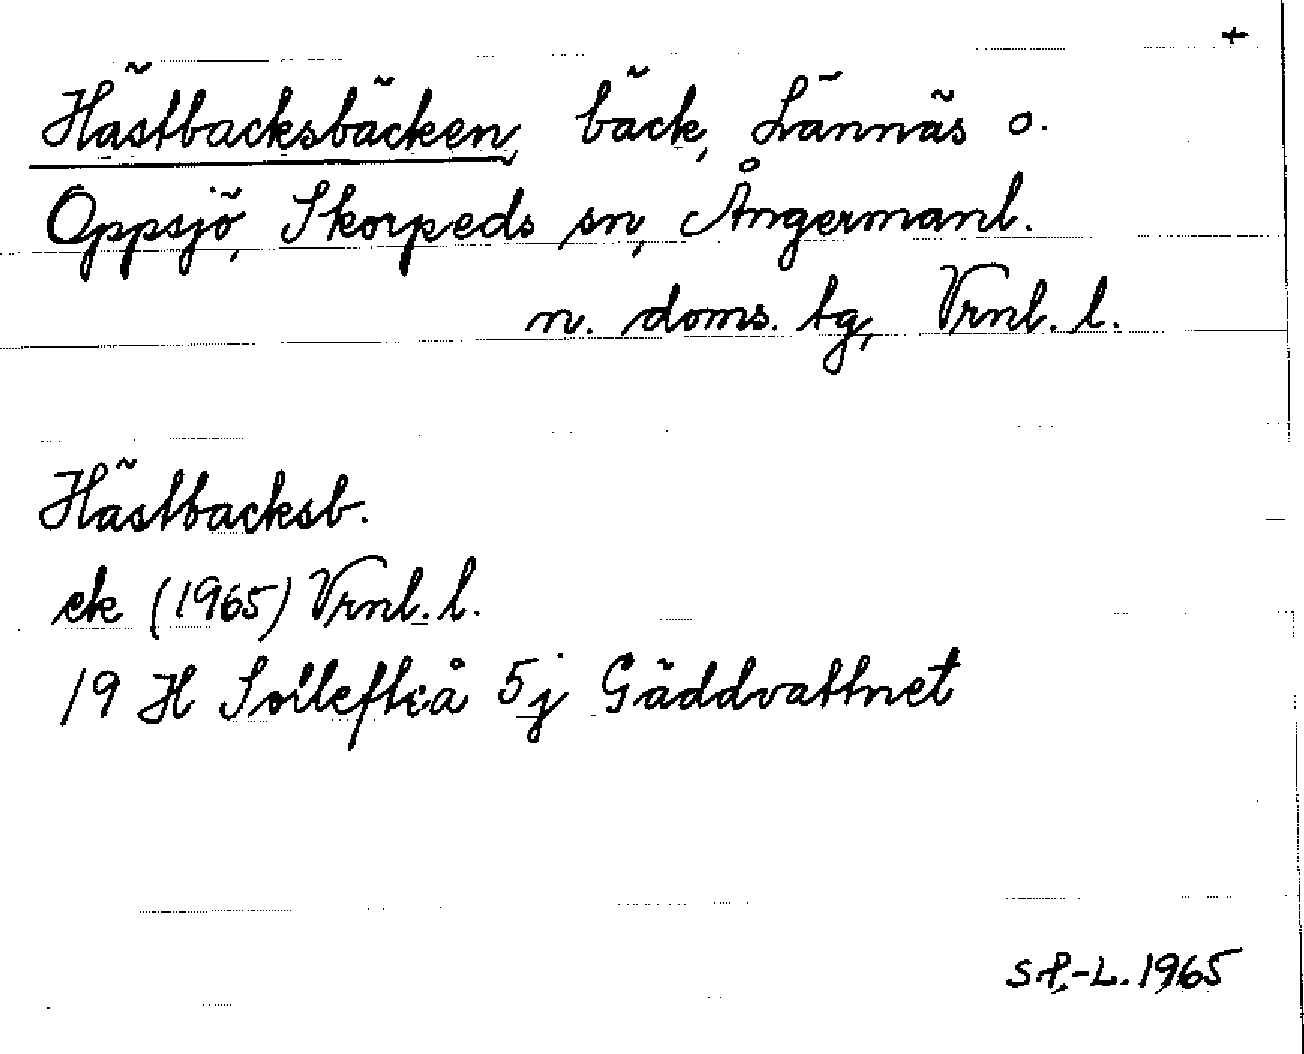 +
Hästbacksbäcken, bäck, Lännäs o.
Oppsjö, Skorpeds sn, Ångermanl.
n. doms. tg, Vrnl. l.
Hästbacksb.
ek (1965) Vrnl. l.
19 H Sollefteå 5j Gäddvattnet
S.P.-L. 1965